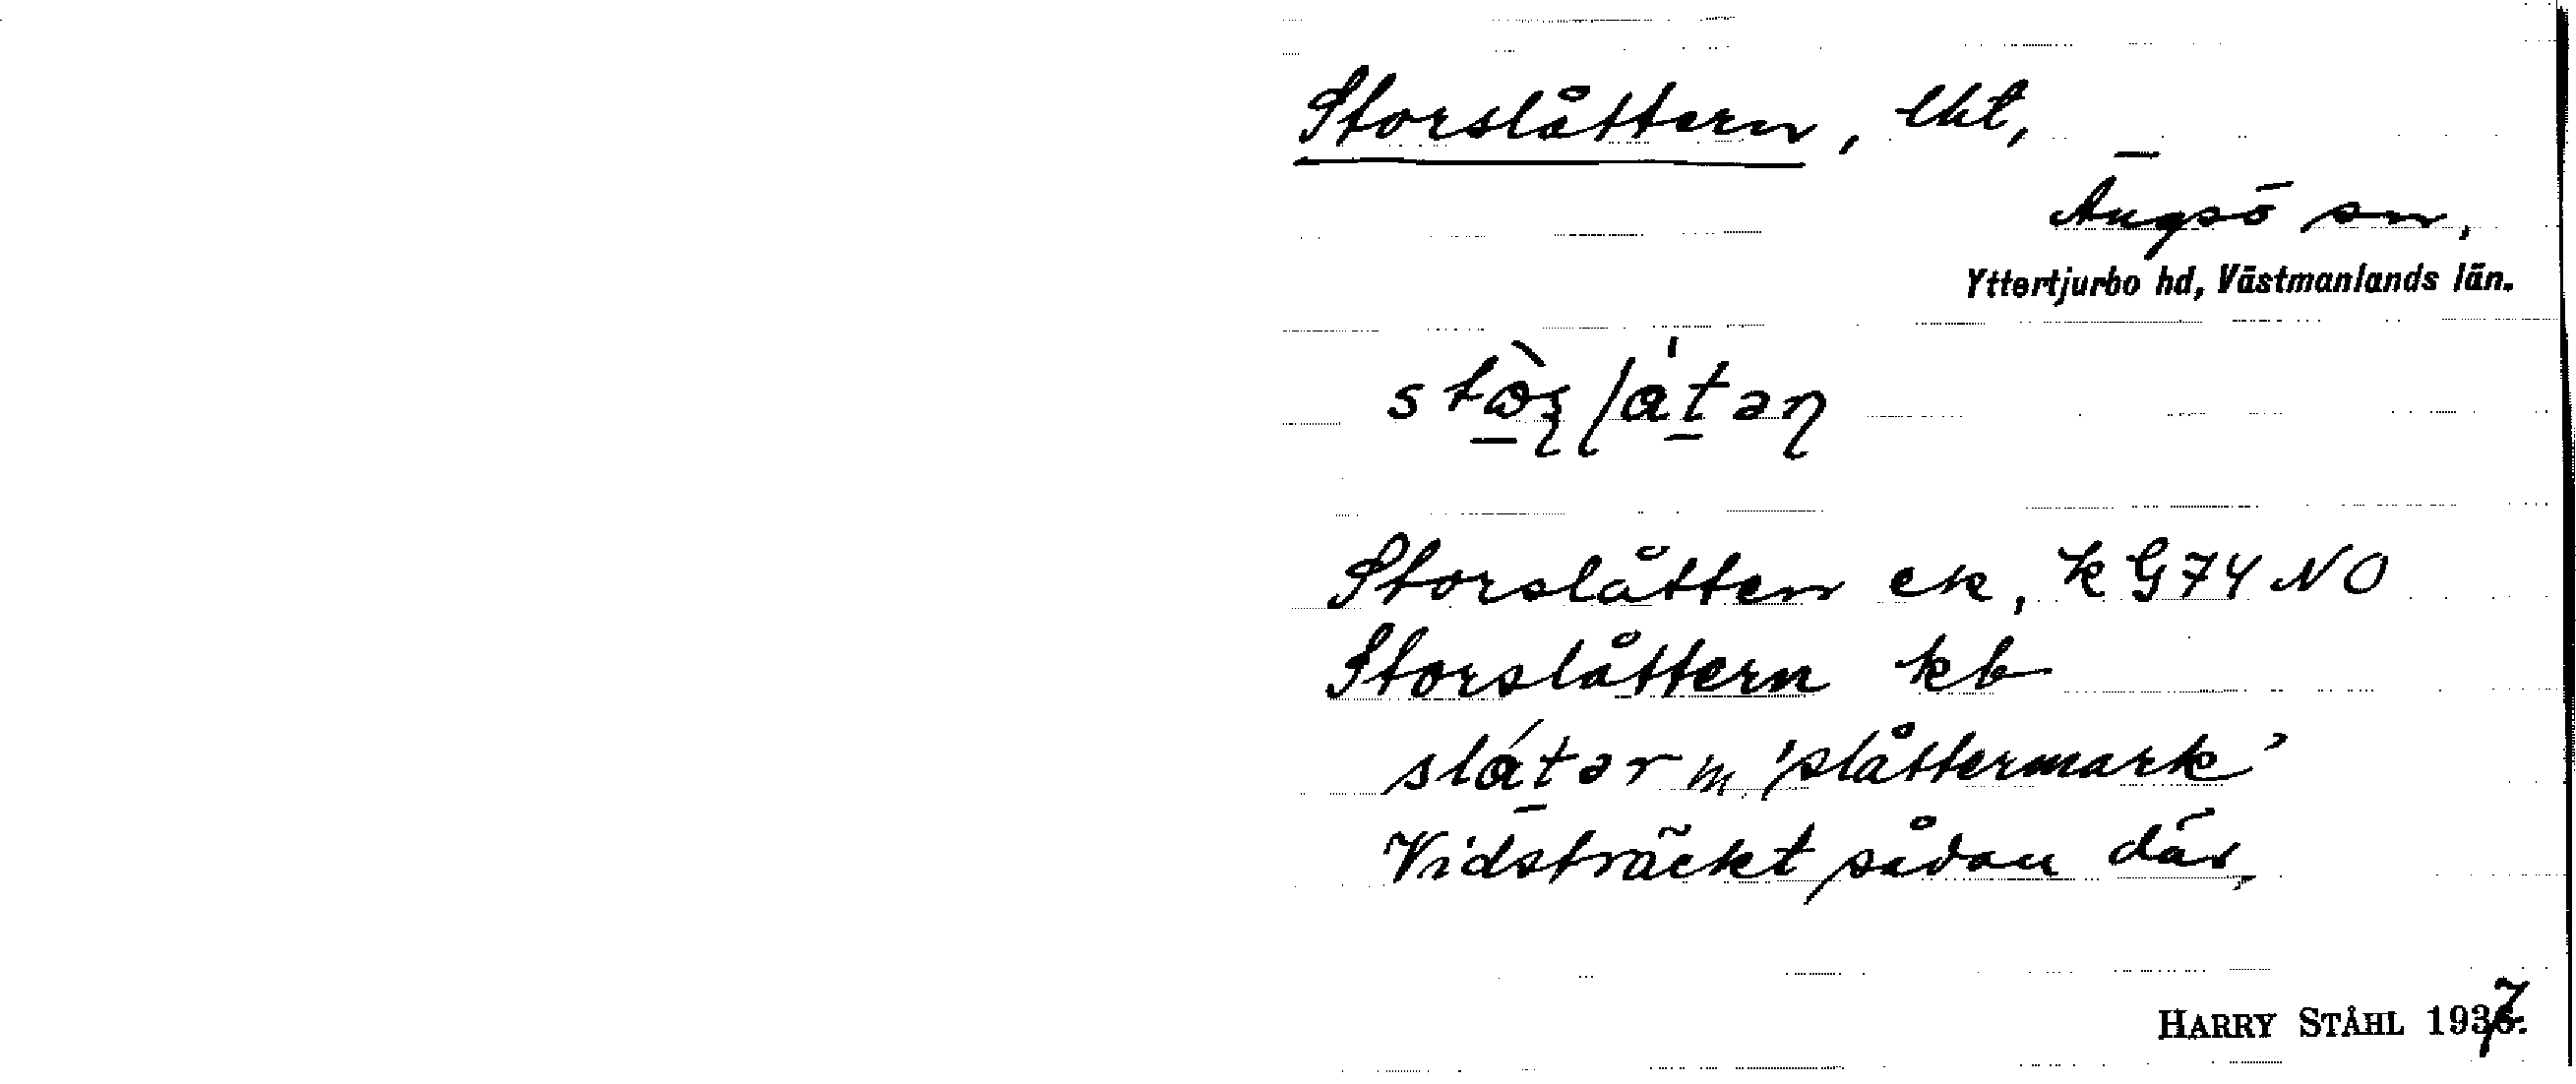 Storslåttern, lht,
Ängsö sn,
Yttertjurbo hd, Västmanlands län.
Storslåtten ek, k G74 NO
Storslåttern kb
slátər m. 'slåttermark'
Vidsträckt sådan där,
HARRY STÅHL 1937.